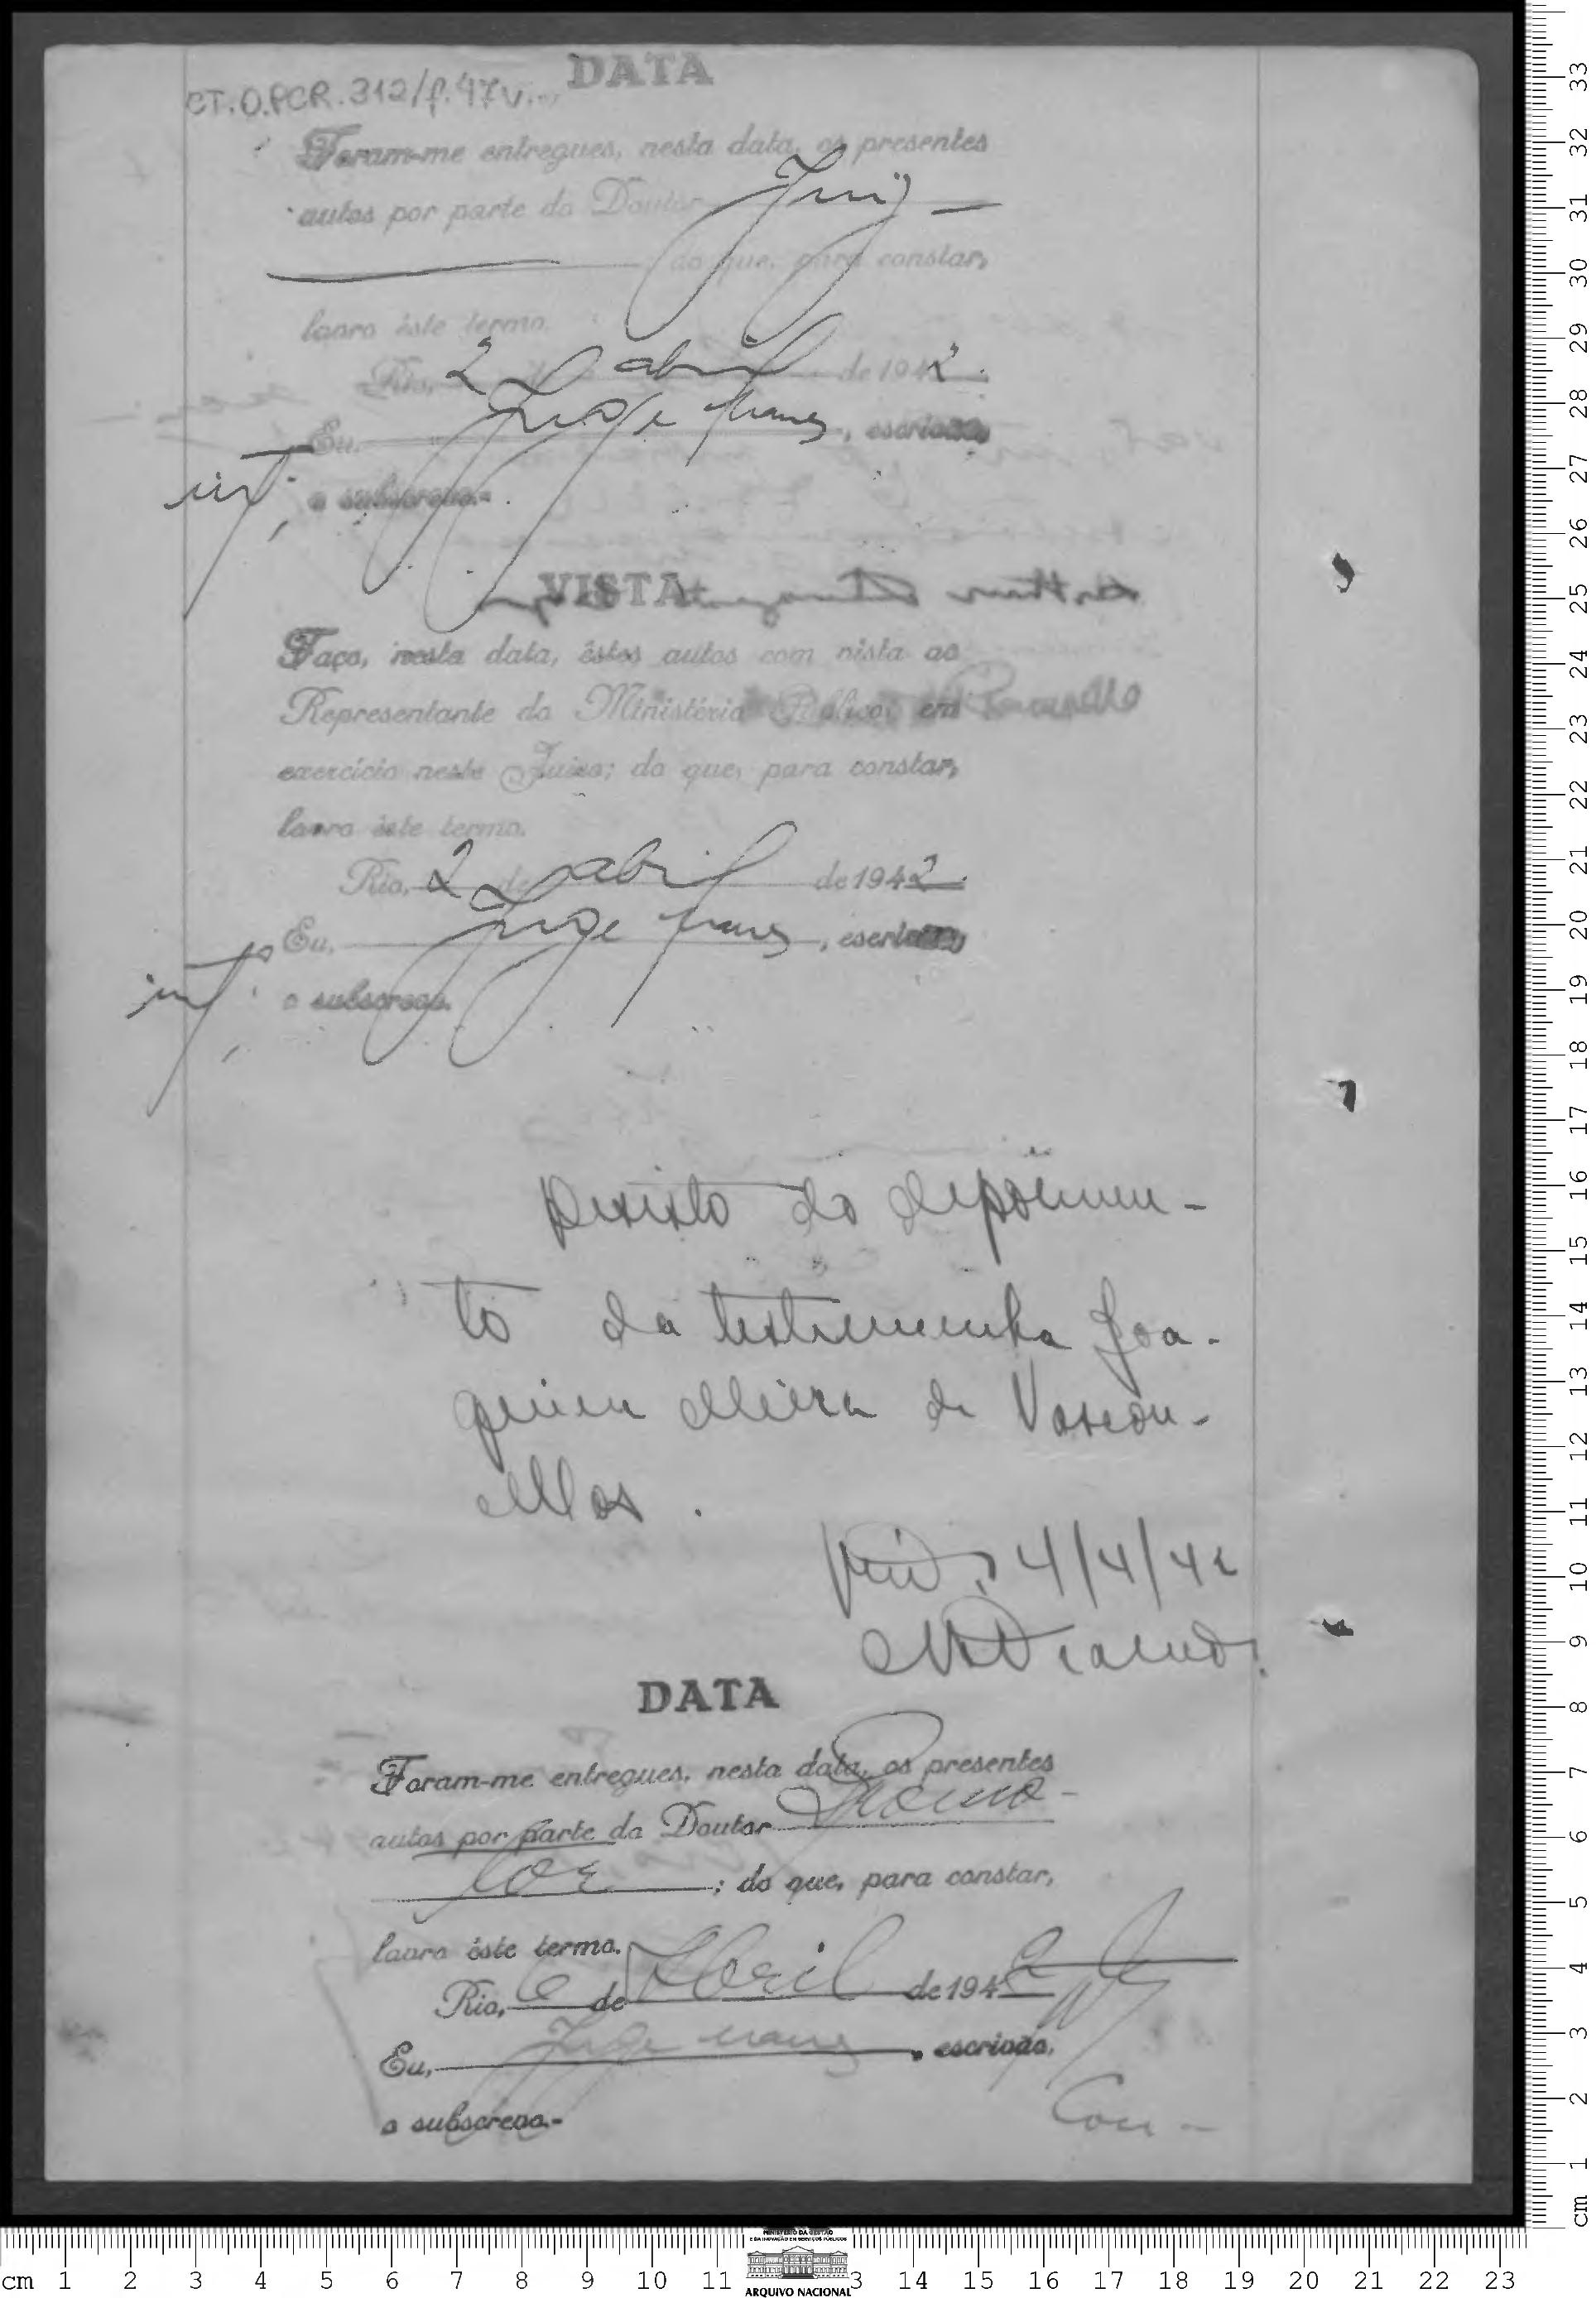 CT.0.PCR.312/f.47v.
DATA
Foram-me entregues, nesta data, os presentes
autos por parte do Doutor Juiz
do que, para constar,
lavro êste termo.
Rio, 2 de abril de 1942.
Eu, Jorge , escrivão
int.
o subscrevo.-
VISTA
Faço, nesta data, êstes autos com vista ao
Representante do Ministério Público, em
exercício neste Juizo; do que, para constar,
lavro êste termo.
Rio, 2 de abril de 1942.
Eu, Jorge , escrivão
int.
o subscrevo.
Desisto do depoimen-
to da testemunha Joa-
quim Meira de Vascon-
cellos.
Rio, 4/4/42
DATA
Foram-me entregues, nesta data, os presentes
autos por parte do Doutor Promo-
tor ; do que, para constar,
lavro êste termo.
Rio, 6 de Abril de 1942
Eu, Jorge , escrivão,
o subscrevo.-
Con-
MINISTÉRIO DA GESTÃO
E DA INOVAÇÃO EM SERVIÇOS PÚBLICOS
ARQUIVO NACIONAL
cm 1 2 3 4 5 6 7 8 9 10 11 3 14 15 16 17 18 19 20 21 22 23
cm 1 2 3 4 5 6 7 8 9 10 11 12 13 14 15 16 17 18 19 20 21 22 23 24 25 26 27 28 29 30 31 32 33